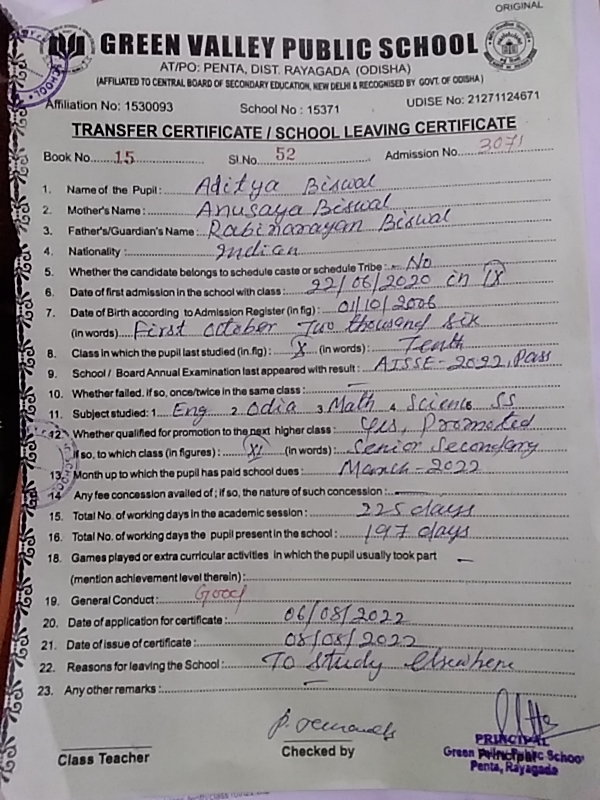 ORIGINAL
GREEN VALLEY PUBLIC SCHOOL
AT/PO: PENTA, DIST. RAYAGADA (ODISHA)
(AFFILIATED TO CENTRAL BOARD OF SECONDARY EDUCATION, NEW DELHI & RECOGNISED BY GOVT. OF ODISHA)
Affiliation No: 1530093 School No : 15371 UDISE No: 21271124671
TRANSFER CERTIFICATE / SCHOOL LEAVING CERTIFICATE
Book No. 15 Sl.No. 52 Admission No. 2071
1. Name of the Pupil : Aditya Biswal
2. Mother's Name : Anusaya Biswal
3. Father's/Guardian's Name : Rabinarayan Biswal
4. Nationality : Indian
5. Whether the candidate belongs to schedule caste or schedule Tribe : No
6. Date of first admission in the school with class : 22/06/2020 in IX
7. Date of Birth according to Admission Register (in fig) : 01/10/2006
(in words) First October Two thousand Six
8. Class in which the pupil last studied (in fig.) : X (in words) : Tenth
9. School / Board Annual Examination last appeared with result : AISSE-2022, Pass
10. Whether failed, if so, once/twice in the same class : —
11. Subject studied: 1. Eng 2. Odia 3. Math 4. Science SS
12. Whether qualified for promotion to the next higher class : Yes, Promoted
if so, to which class (in figures) : XI (in words) : Senior Secondary
13. Month up to which the pupil has paid school dues : March-2022
14. Any fee concession availed of ; if so, the nature of such concession : —
15. Total No. of working days in the academic session : 225 days
16. Total No. of working days the pupil present in the school : 197 days
18. Games played or extra curricular activities in which the pupil usually took part —
(mention achievement level therein) :
19. General Conduct : Good
20. Date of application for certificate : 06/08/2022
21. Date of issue of certificate : 08/08/2022
22. Reasons for leaving the School : To Study Elsewhere
23. Any other remarks : —
Class Teacher Checked by Principal
PRINCIPAL
Green Valley Public School
Penta, Rayagada